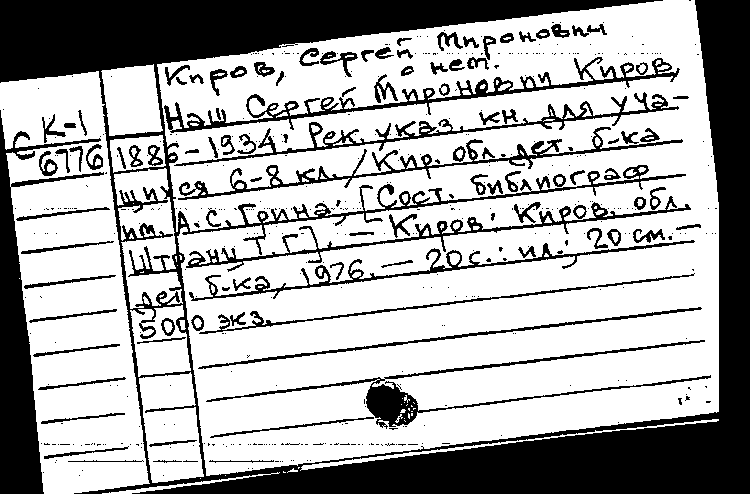 Киров, Сергей Миронович
о нем.
Наш Сергей Миронович Киров,
С К-1
6776
1886-1934: Рек. указ. кн. для уча-
щихся 6-8 кл. / Кир. обл. дет. б-ка
им. А.С. Грина; [Сост. библиограф
Штранц Т.Г]. — Киров: Киров. обл.
дет. б-ка, 1976. — 20 с.: ил.; 20 см. —
5000 экз.